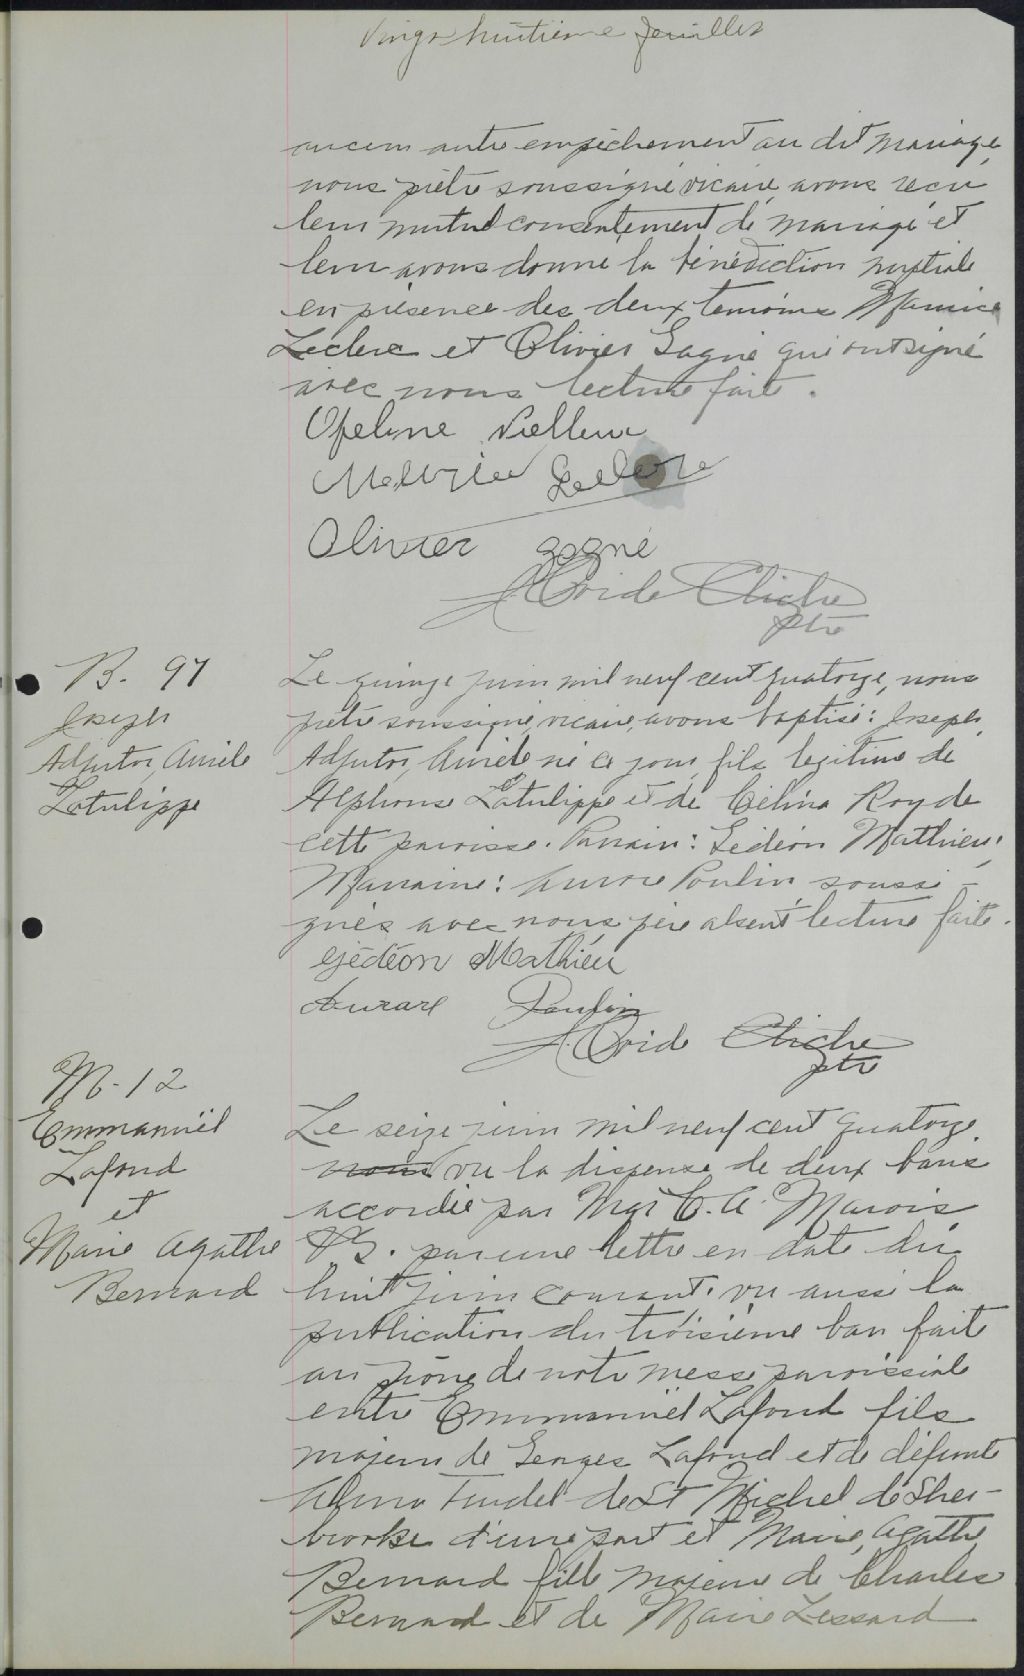 Vingt huitième feuillet
aucun autre empêchement au dit mariage,
nous prêtre soussigné, vicaire, avons reçu
leur mutuel consentement de mariage et
leur avons donné la bénédiction nuptiale
en présence des deux témoins Maurice
Leclerc et Olivier Gagné qui ont signé
avec nous lecture faite.
Maurice Leclerc
Olivier gagné
J. Ovide Cliche
ptre
B. 97
Joseph
Adjutor, Aurèle
Latulippe
Le quinze juin mil neuf cent quatorze, nous
prêtre soussigné, vicaire, avons baptisé: Joseph,
Adjutor, Aurèle né ce jour, fils légitime de
Alphonse Latulippe et de Célina Roy de
cette paroisse. Parrain: Gédéon Mathieu;
Marraine: Aurore Poulin, soussi-
gnés avec nous, père absent, lecture faite.
Gédéon Mathieu
Aurore Poulin
J. Ovide Cliche
ptre
M-12
Emmanuël
Lafond
et
Marie Agathe
Bernard
Le seize juin mil neuf cent quatorze,
nous vu la dispense de deux bans
accordée par Mgr C. A. Marois,
V. G. par une lettre en date du
huit juin courant; vu aussi la
publication du troisième ban faite
au prône de notre messe paroissiale
entre Emmanuël Lafond fils
majeur de Georges Lafond et de défunte
de St Michel de Sher-
brooke d'une part et Marie, Agathe
Bernard fille majeure de Charles
Bernard et de Marie Lessard